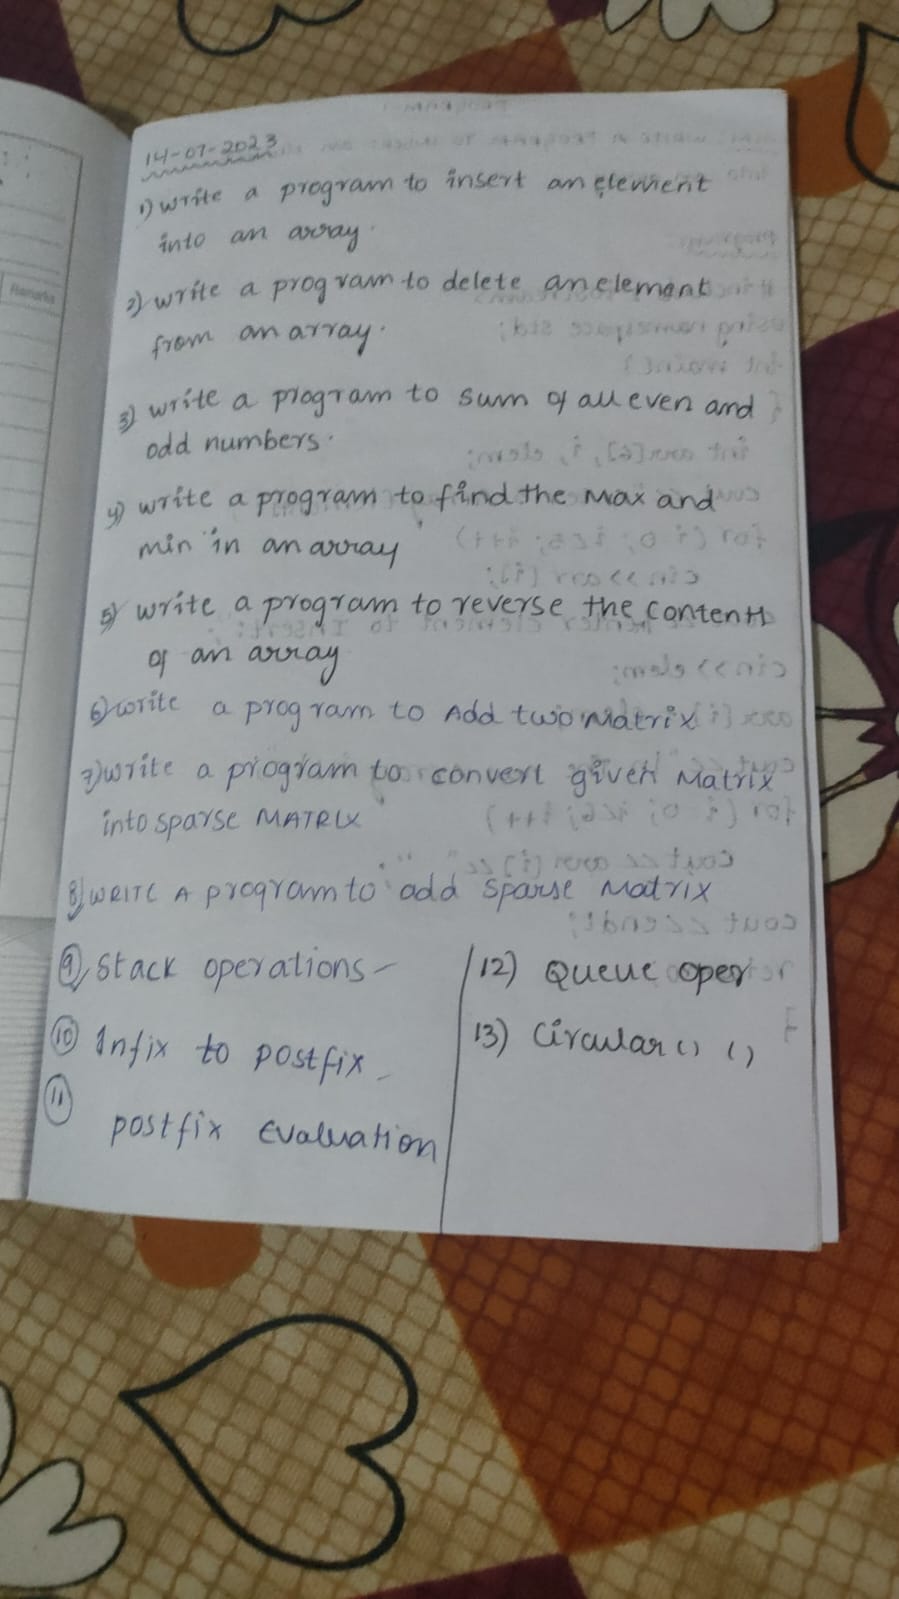 14-07-2023
1) write a program to insert an element
into an array.
2) write a program to delete an element
from an array.
3) write a program to sum of all even and
odd numbers.
4) write a program to find the Max and
min in an array
5) write a program to reverse the content
of an array
6) write a program to Add two Matrix
7) write a program to convert given Matrix
into sparse MATRIX
8) WRITE A program to add sparse Matrix
9) Stack operations -
10) Infix to postfix -
11)
postfix Evaluation
12) Queue oper
13) Circular () ()
Remarks